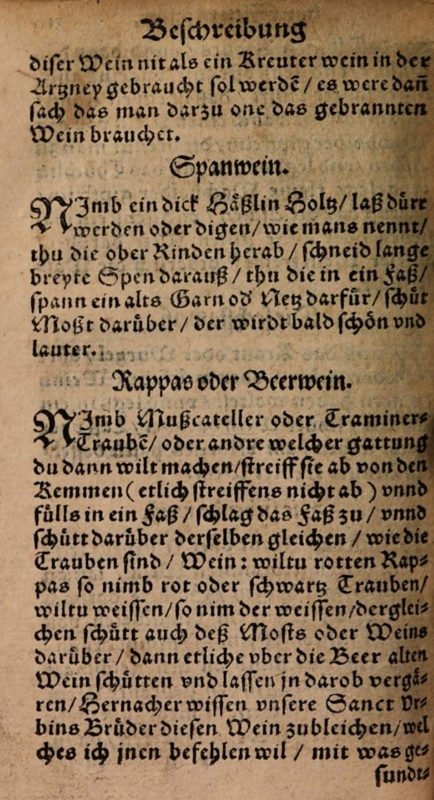 Beschreibung
diser Wein nit als ein Kreuter wein in der
Artzney gebraucht sol werdē / es were dañ
sach das man darzu one das gebrannten
Wein brauchet.
Spanwein.
NImb ein dick Häßlin Holtz / laß dürr
werden oder digen / wie mans nennt /
thu die ober Rinden herab / schneid lange
breyte Spen darauß / thu die in ein Faß /
spann ein alts Garn od' Netz darfür / schüt
Moßt darüber / der wirdt bald schön vnd
lauter.
Rappas oder Beerwein.
NImb Mußcateller oder Traminer-
Traubē / oder andre welcher gattung
du dann wilt machen / streiff sie ab von den
Kemmen (etlich streiffens nicht ab) vnnd
fülls in ein Faß / schlag das Faß zu / vnnd
schütt darüber derselben gleichen / wie die
Trauben sind / Wein: wiltu rotten Rap-
pas so nimb rot oder schwartz Trauben /
wiltu weissen / so nim der weissen / derglei-
chen schütt auch deß Mosts oder Weins
darüber / dann etliche vber die Beer alten
Wein schütten vnd lassen jn darob vergä-
ren / Hernacher wissen vnsere Sanct Vr-
bins Brüder diesen Wein zubleichen / wel
ches ich jnen befehlen wil / mit was ge-
sundt-